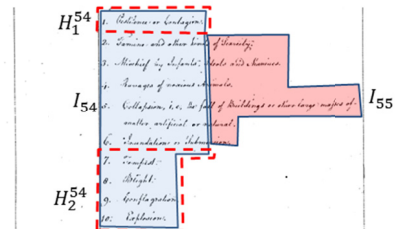 H₁⁵⁴
1. Pestilence or Contagion.
2. Famine and other kinds of Scarcity;
3. Mischief by Infants, Ideots and Maniacs.
4. Ravages of noxious Animals.
I₅₄ 5. Collapsion, i.e. the fall of Buildings or other large masses of I₅₅
matter, artificial or natural.
6. Inundation or Submersion
7. Tempest.
8. Blight.
H₂⁵⁴ 9. Conflagration
10. Explosion.